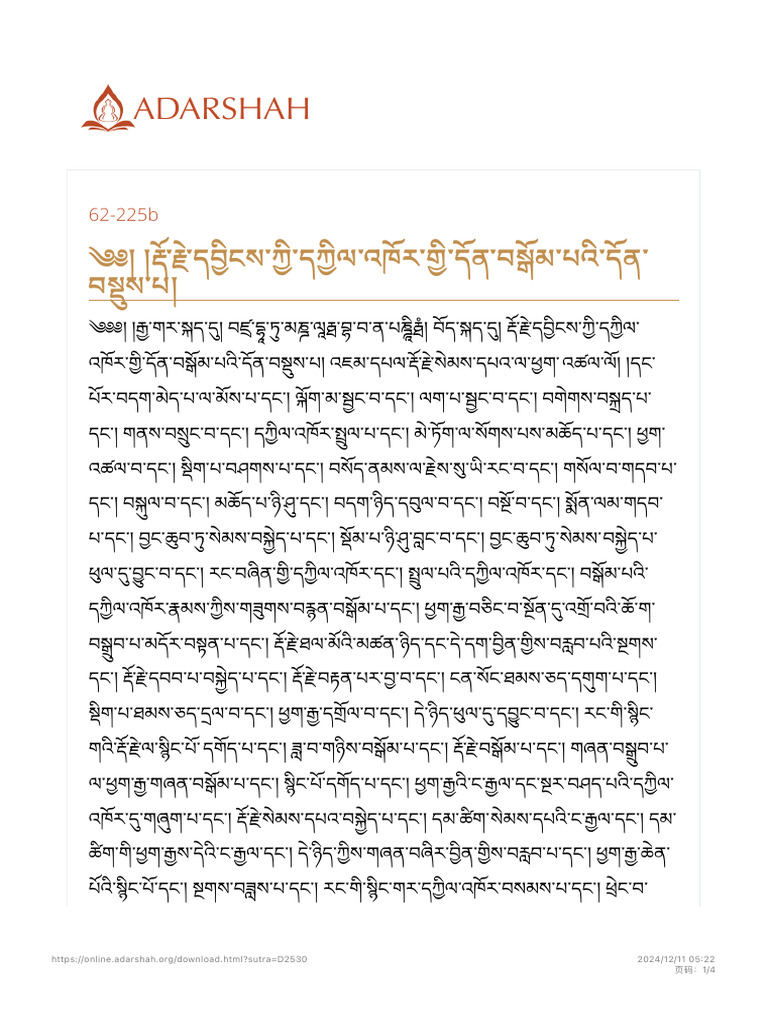 ADARSHAH
62-225b
༄༅། །རྡོ་རྗེ་དབྱིངས་ཀྱི་དཀྱིལ་འཁོར་གྱི་དོན་བསྒོམ་པའི་དོན་
བསྡུས་པ།
༄༅༅། །རྒྱ་གར་སྐད་དུ། བཛྲ་དྷཱ་ཏུ་མཎྜ་ལཱརྠ་བྷཱ་བ་ན་པཎྜི་རྠཾ། བོད་སྐད་དུ། རྡོ་རྗེ་དབྱིངས་ཀྱི་དཀྱིལ་
འཁོར་གྱི་དོན་བསྒོམ་པའི་དོན་བསྡུས་པ། འཇམ་དཔལ་རྡོ་རྗེ་སེམས་དཔའ་ལ་ཕྱག་ འཚལ་ལོ། །དང་
པོར་བདག་མེད་པ་ལ་མོས་པ་དང་། ལྐོག་མ་སྦྱང་བ་དང་། ལག་པ་སྦྱང་བ་དང་། བགེགས་བསྐྲད་པ་
དང་། གནས་བསྲུང་བ་དང་། དཀྱིལ་འཁོར་སྤྲུལ་པ་དང་། མེ་ཏོག་ལ་སོགས་པས་མཆོད་པ་དང་། ཕྱག་
འཚལ་བ་དང་། སྡིག་པ་བཤགས་པ་དང་། བསོད་ནམས་ལ་རྗེས་སུ་ཡི་རང་བ་དང་། གསོལ་བ་གདབ་པ་
དང་། བསྐུལ་བ་དང་། མཆོད་པ་ཉི་ཤུ་དང་། བདག་ཉིད་དབུལ་བ་དང་། བསྔོ་བ་དང་། སྨོན་ལམ་གདབ་
པ་དང་། བྱང་ཆུབ་ཏུ་སེམས་བསྐྱེད་པ་དང་། སྡོམ་པ་ཉི་ཤུ་བླང་བ་དང་། བྱང་ཆུབ་ཏུ་སེམས་བསྐྱེད་པ་
ཕུལ་དུ་བྱུང་བ་དང་། རང་བཞིན་གྱི་དཀྱིལ་འཁོར་དང་། སྤྲུལ་པའི་དཀྱིལ་འཁོར་དང་། བསྒོམ་པའི་
དཀྱིལ་འཁོར་རྣམས་ཀྱིས་གཟུགས་བརྙན་བསྒོམ་པ་དང་། ཕྱག་རྒྱ་བཅིང་བ་སྔོན་དུ་འགྲོ་བའི་ཆོ་ག་
བསྒྲུབ་པ་མདོར་བསྟན་པ་དང་། རྡོ་རྗེ་ཐལ་མོའི་མཚན་ཉིད་དང་དེ་དག་བྱིན་གྱིས་བརླབ་པའི་སྔགས་
དང་། རྡོ་རྗེ་དབབ་པ་བསྐྱེད་པ་དང་། རྡོ་རྗེ་བརྟན་པར་བྱ་བ་དང་། ངན་སོང་ཐམས་ཅད་དགུག་པ་དང་།
སྡིག་པ་ཐམས་ཅད་དྲལ་བ་དང་། ཕྱག་རྒྱ་དགྲོལ་བ་དང་། དེ་ཉིད་ཕུལ་དུ་དབྱུང་བ་དང་། རང་གི་སྙིང་
གའི་རྡོ་རྗེ་ལ་སྙིང་པོ་ དགོད་པ་དང་། ཟླ་བ་གཉིས་བསྒོམ་པ་དང་། རྡོ་རྗེ་བསྒོམ་པ་དང་། གཞན་བསྒྲུབ་པ་
ལ་ཕྱག་རྒྱ་གཞན་བསྒོམ་པ་དང་། སྙིང་པོ་དགོད་པ་དང་། ཕྱག་རྒྱའི་ང་རྒྱལ་དང་སྔར་བཤད་པའི་དཀྱིལ་
འཁོར་དུ་གཞུག་པ་དང་། རྡོ་རྗེ་སེམས་དཔའ་བསྐྱེད་པ་དང་། དམ་ཚིག་སེམས་དཔའི་ང་རྒྱལ་དང་། དམ་
ཚིག་གི་ཕྱག་རྒྱས་དེའི་ང་རྒྱལ་དང་། དེ་ཉིད་ཀྱིས་གཞན་བཞིར་བྱིན་གྱིས་བརླབ་པ་དང་། ཕྱག་རྒྱ་ཆེན་
པོའི་སྙིང་པོ་དང་། སྔགས་བཟླས་པ་དང་། རང་གི་སྙིང་གར་དཀྱིལ་འཁོར་བསམས་པ་དང་། ཕྲེང་བ་
https://online.adarshah.org/download.html?sutra=D2530
2024/12/11 05:22
页码：1/4